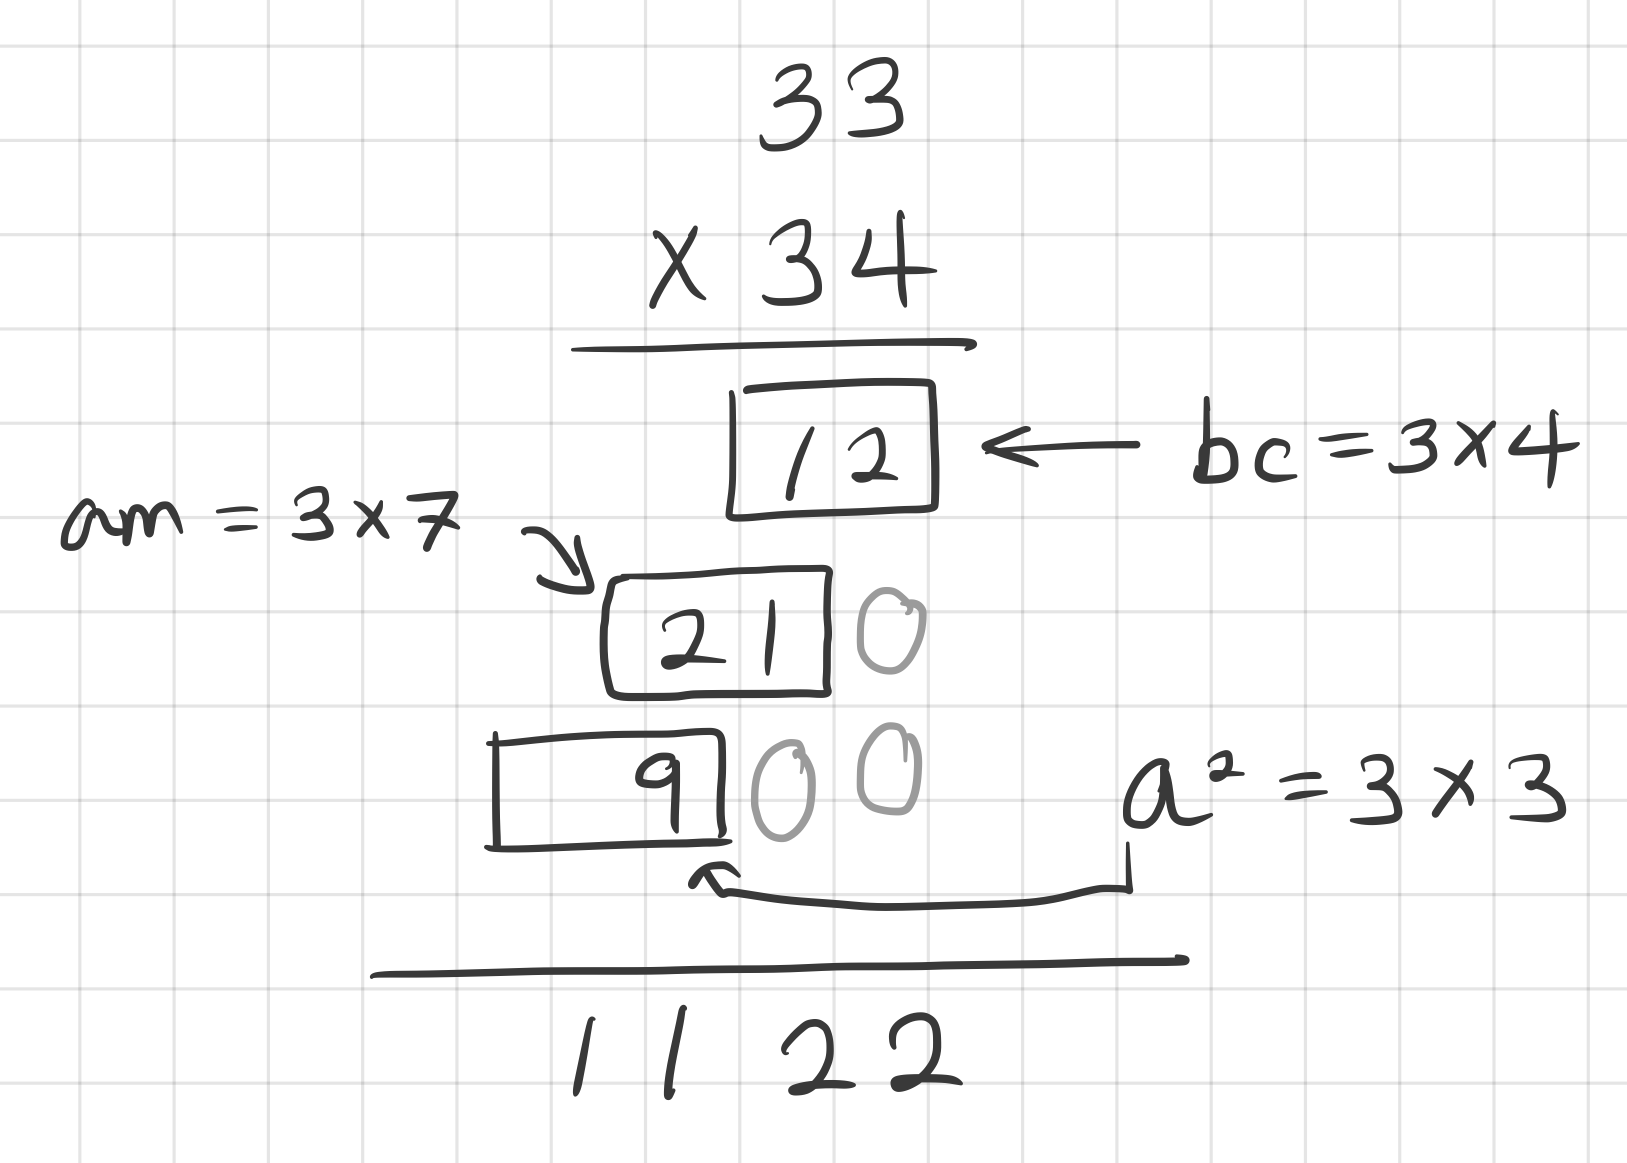 33
× 34
12 ← bc = 3×4
am = 3×7
21 0
9 0 0
a² = 3 × 3
1122